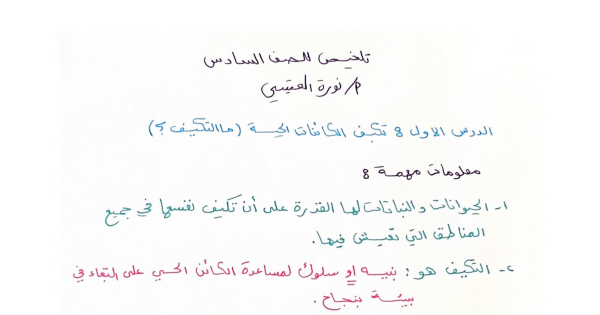 تلخيص للصف السادس
م/ نورة العتيبي
الدرس الاول : تكيف الكائنات الحية (ما التكيف؟)
معلومات مهمة :
١- الحيوانات والنباتات لها القدرة على أن تكيف نفسها في جميع
المناطق التي تعيش فيها.
٢- التكيف هو: بنيه او سلوك لمساعدة الكائن الحي على البقاء في
بيئة بنجاح.